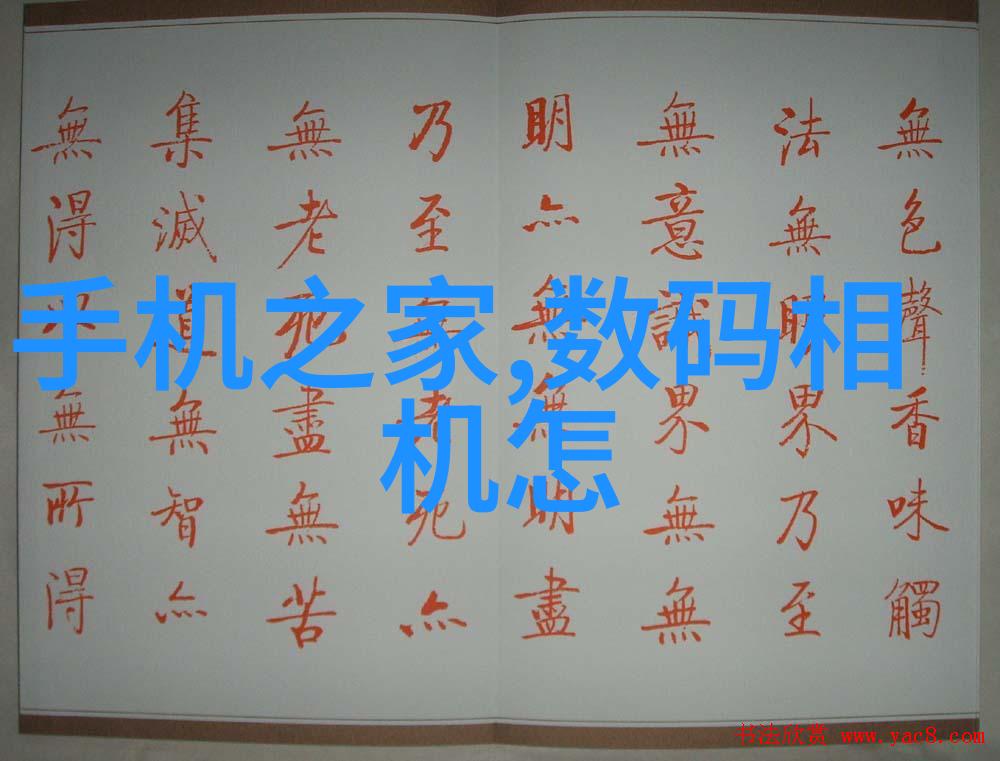 無色聲香味觸
法無眼界乃至
無意識界無無
明亦無無明盡
乃至無老死亦
無老死盡無苦
集滅道無智亦
無得以無所得
手机之家,数码相
机怎
书法欣赏 www.yac8.com